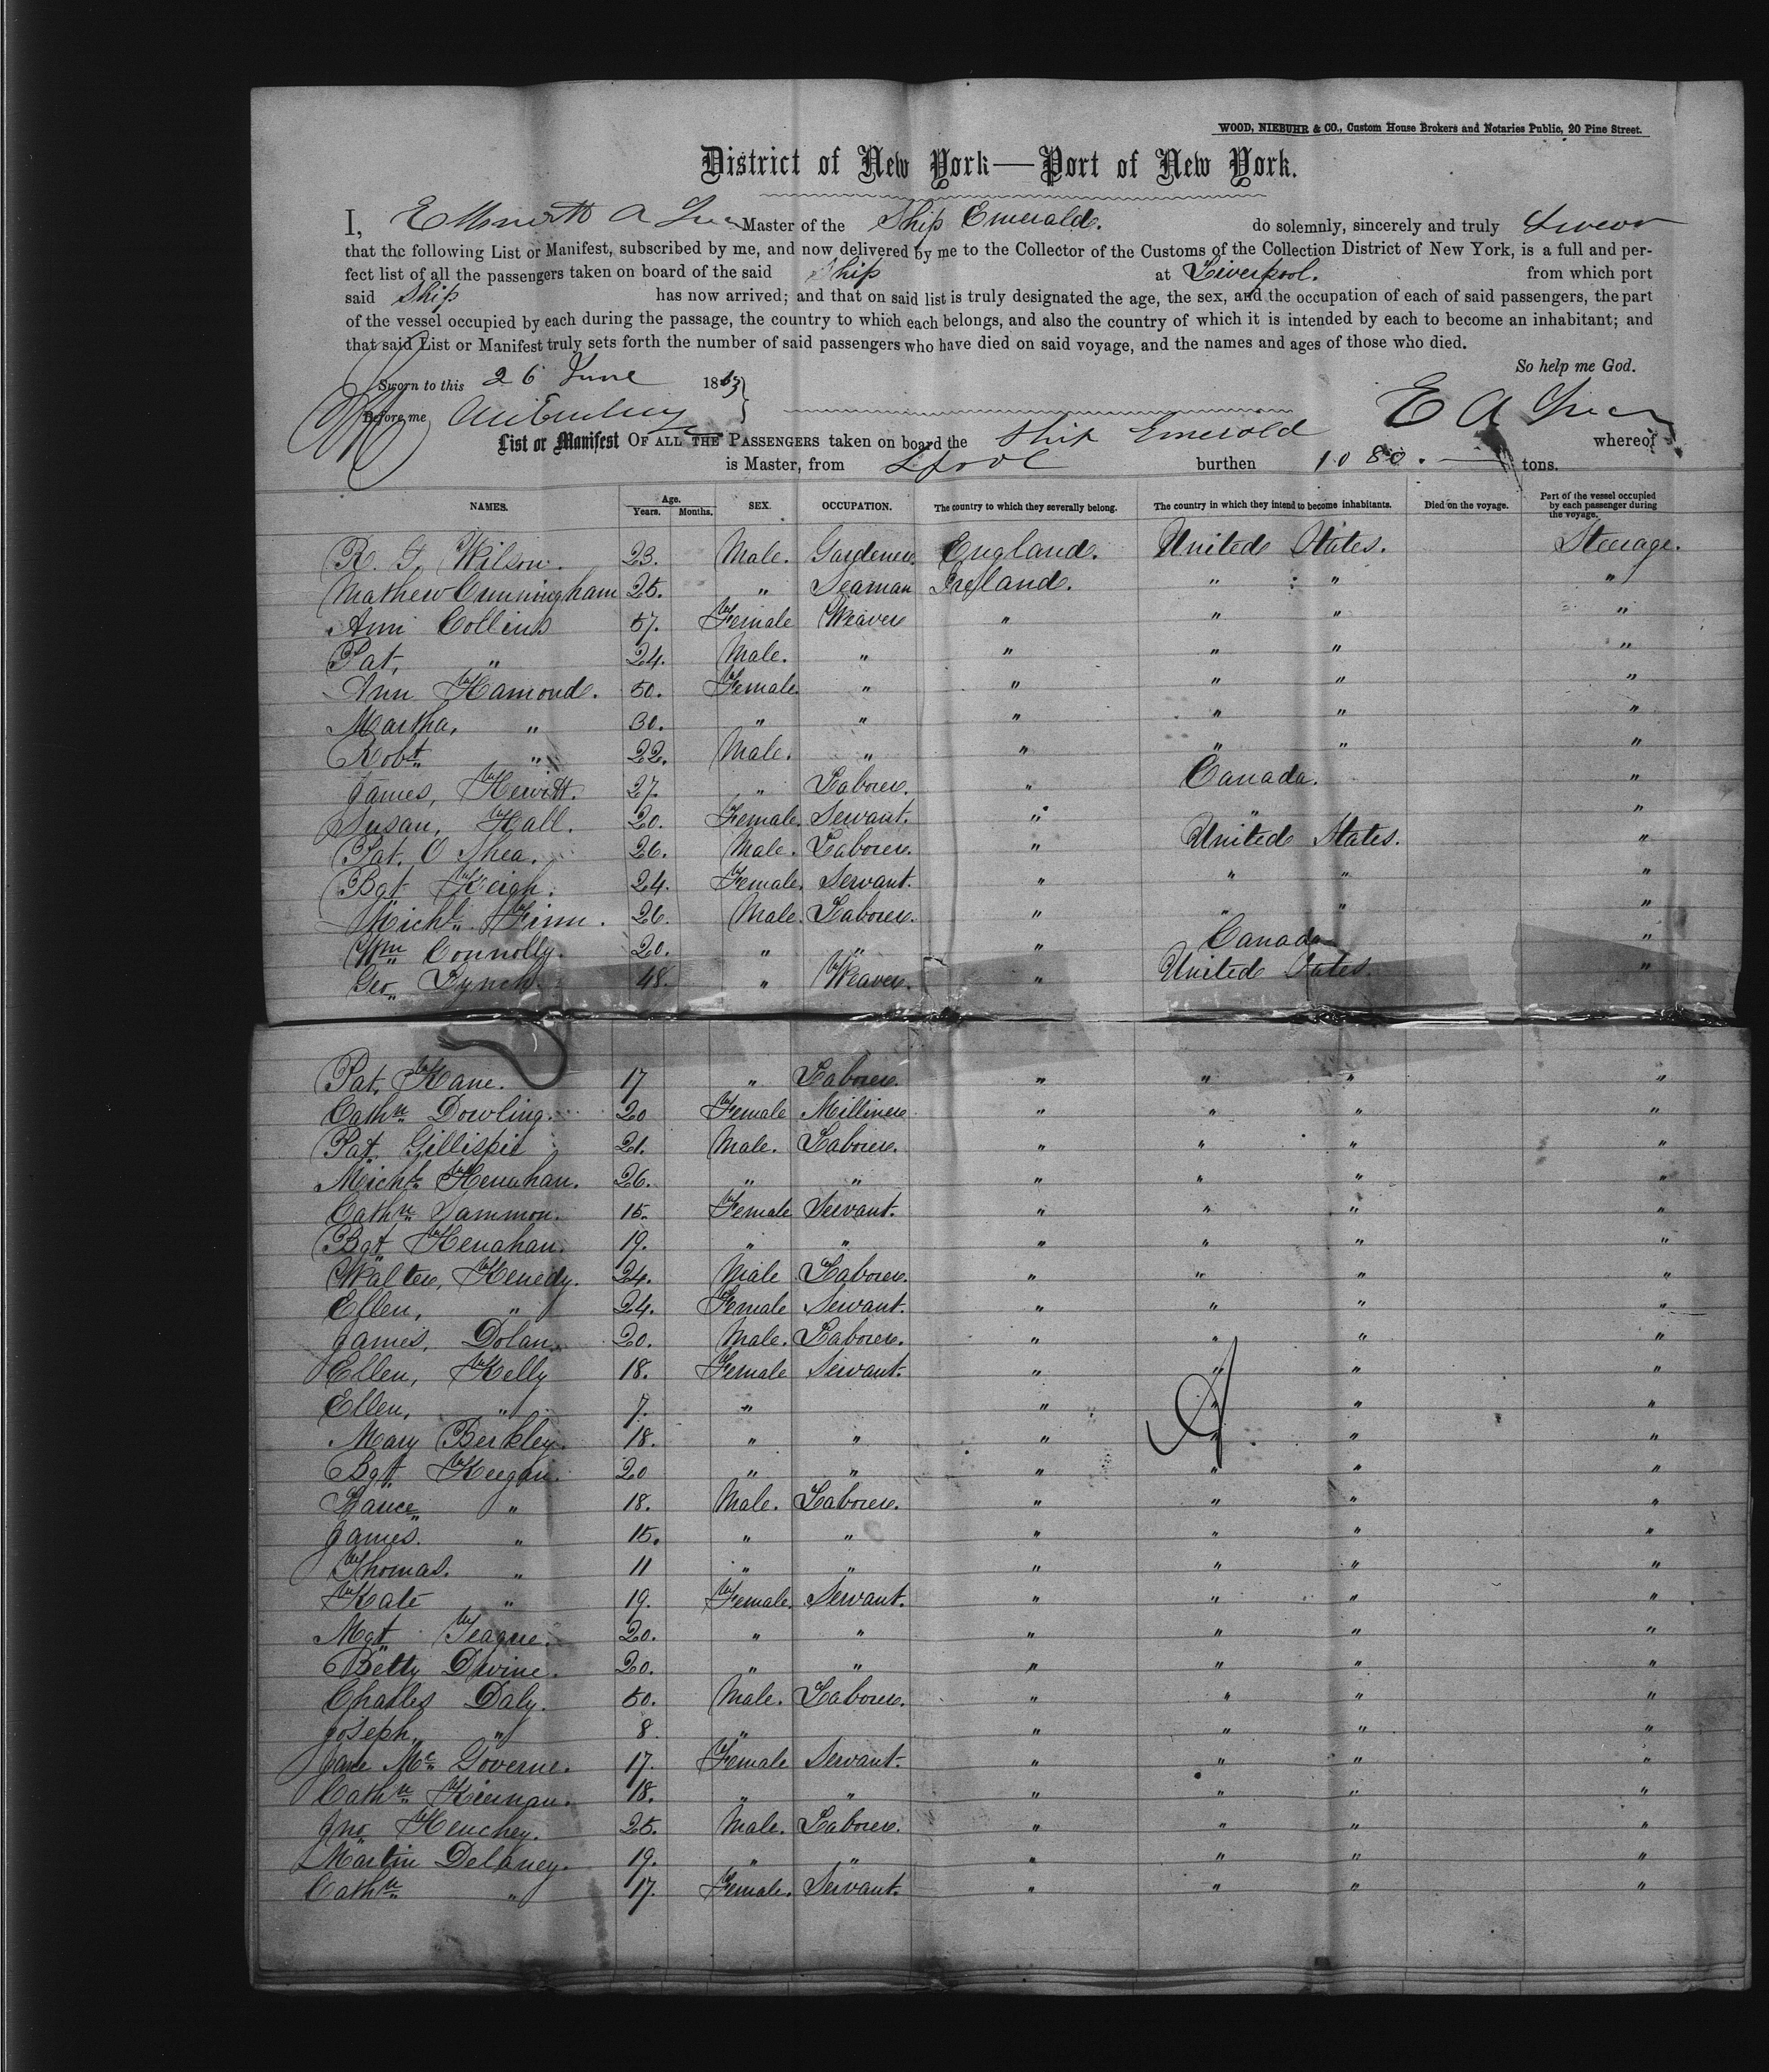 WOOD, NIEBUHR & CO., Custom House Brokers and Notaries Public, 20 Pine Street.
District of New York—Port of New York.
I, A Master of the Ship Emerald. do solemnly, sincerely and truly Swear
that the following List or Manifest, subscribed by me, and now delivered by me to the Collector of the Customs of the Collection District of New York, is a full and per-
fect list of all the passengers taken on board of the said Ship at Liverpool. from which port
said Ship has now arrived; and that on said list is truly designated the age, the sex, and the occupation of each of said passengers, the part
of the vessel occupied by each during the passage, the country to which each belongs, and also the country of which it is intended by each to become an inhabitant; and
that said List or Manifest truly sets forth the number of said passengers who have died on said voyage, and the names and ages of those who died.
So help me God.
Sworn to this 26 June 1863
Before me E A
List or Manifest OF ALL THE PASSENGERS taken on board the Ship Emerald whereof
is Master, from Lpool burthen 1080. tons.
NAMES. Age. Years. Months. SEX. OCCUPATION. The country to which they severally belong. The country in which they intend to become inhabitants. Died on the voyage. Part of the vessel occupied by each passenger during the voyage.
Wilson. 23. Male. Gardener. England. United States. Steerage.
Mathew Cunningham 25. " Seaman Ireland. " " "
Ann Collins 57. Female Weaver " " " "
Pat. " 24. Male. " " " " "
Ann Hamond. 50. Female " " " " "
Martha, " 30. " " " " " "
Robt " 22. Male. " " " " "
James, Hewitt. 27. " Laborer. " Canada. "
Susan, Hall. 20. Female. Servant. " " "
Pat. O Shea. 26. Male. Laborer. " United States. "
Bgt Keigh. 24. Female. Servant. " " " "
Michl. Finn. 26. Male. Laborer. " " " "
Wm Connolly. 20. " " " Canada "
Geo Lynch. 48. " Weaver. " United States. "
Pat. Kane. 17 " Laborer. " " " "
Cathn Dowling. 20 Female Milliner " " " "
Pat. Gillispie 21. Male. Laborer. " " " "
Michl. Henahan. 26. " " " " " "
Cathn Gammon. 15. Female Servant. " " " "
Bgt Henahan. 19. " " " " " "
Walter, Kenedy. 24. Male Laborer. " " " "
Ellen, " 24. Female Servant. " " " "
James, Dolan. 20. Male. Laborer. " " " "
Ellen, Kelly 18. Female Servant. " " " "
Ellen, " 7. " " " " "
Mary Berkley. 18. " " " " " "
Bgt Keegan. 20 " " " " " "
Lance " 18. Male. Laborer. " " " "
James. " 15. " " " " " "
Thomas. " 11 " " " " " "
Kate " 19. Female. Servant. " " " "
Mgt Teague. 20. " " " " " "
Betty Divine. 20. " " " " " "
Charles Daly. 50. Male. Laborer. " " " "
Joseph, " 8 " " " " "
Jane Mc Governe. 17. Female Servant. " " " "
Cathn Kiernan. 18. " " " " " "
Jno Henchey. 25. Male. Laborer. " " " "
Martin Delaney. 19. " " " " " "
Cathn " 17. Female. Servant. " " " "